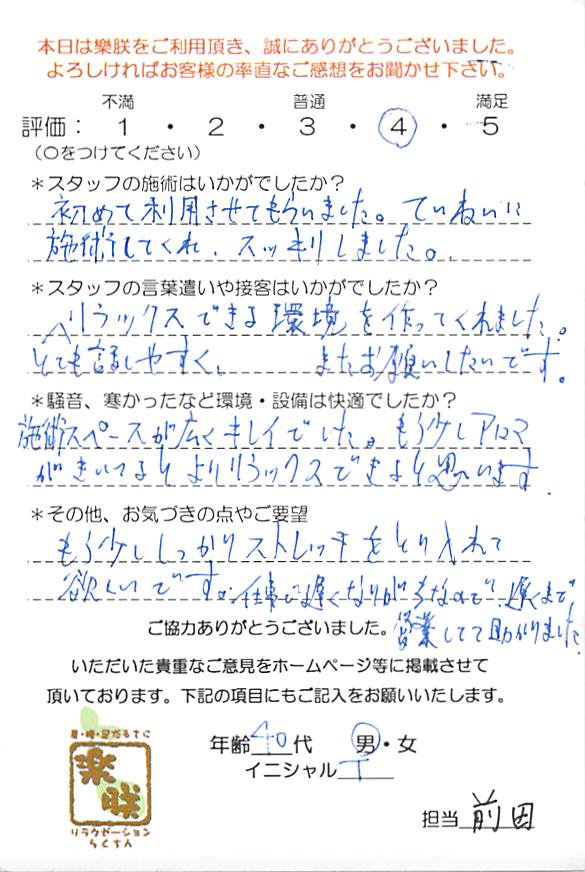 本日は樂朕をご利用頂き、誠にありがとうございました。
よろしければお客様の率直なご感想をお聞かせ下さい。
不満 普通 満足
評価： 1 ・ 2 ・ 3 ・ 4 ・ 5
（○をつけてください）
＊スタッフの施術はいかがでしたか？
初めて利用させてもらいました。ていねいに
施術してくれ、スッキリしました。
＊スタッフの言葉遣いや接客はいかがでしたか？
リラックスできる環境を作ってくれました。
とても話しやすく、 またお願いしたいです。
＊騒音、寒かったなど環境・設備は快適でしたか？
施術スペースが広くキレイでした。もう少しアロマ
がきいてるとよりリラックスできると思います.
＊その他、お気づきの点やご要望
もう少ししっかりストレッチをとり入れて
欲しいです。仕事で遅くなりがちなので、遅くまで
ご協力ありがとうございました。営業してて助かりました
いただいた貴重なご意見をホームページ等に掲載させて
頂いております。下記の項目にもご記入をお願いいたします。
年齢 40 代 男・女
イニシャル T
肩・腰・足からすでに
楽朕
リラクゼーション
らくちん
担当 前田